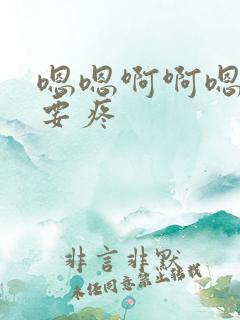 嗯嗯啊啊嗯
要疼
非言非默
未经同意禁止转载